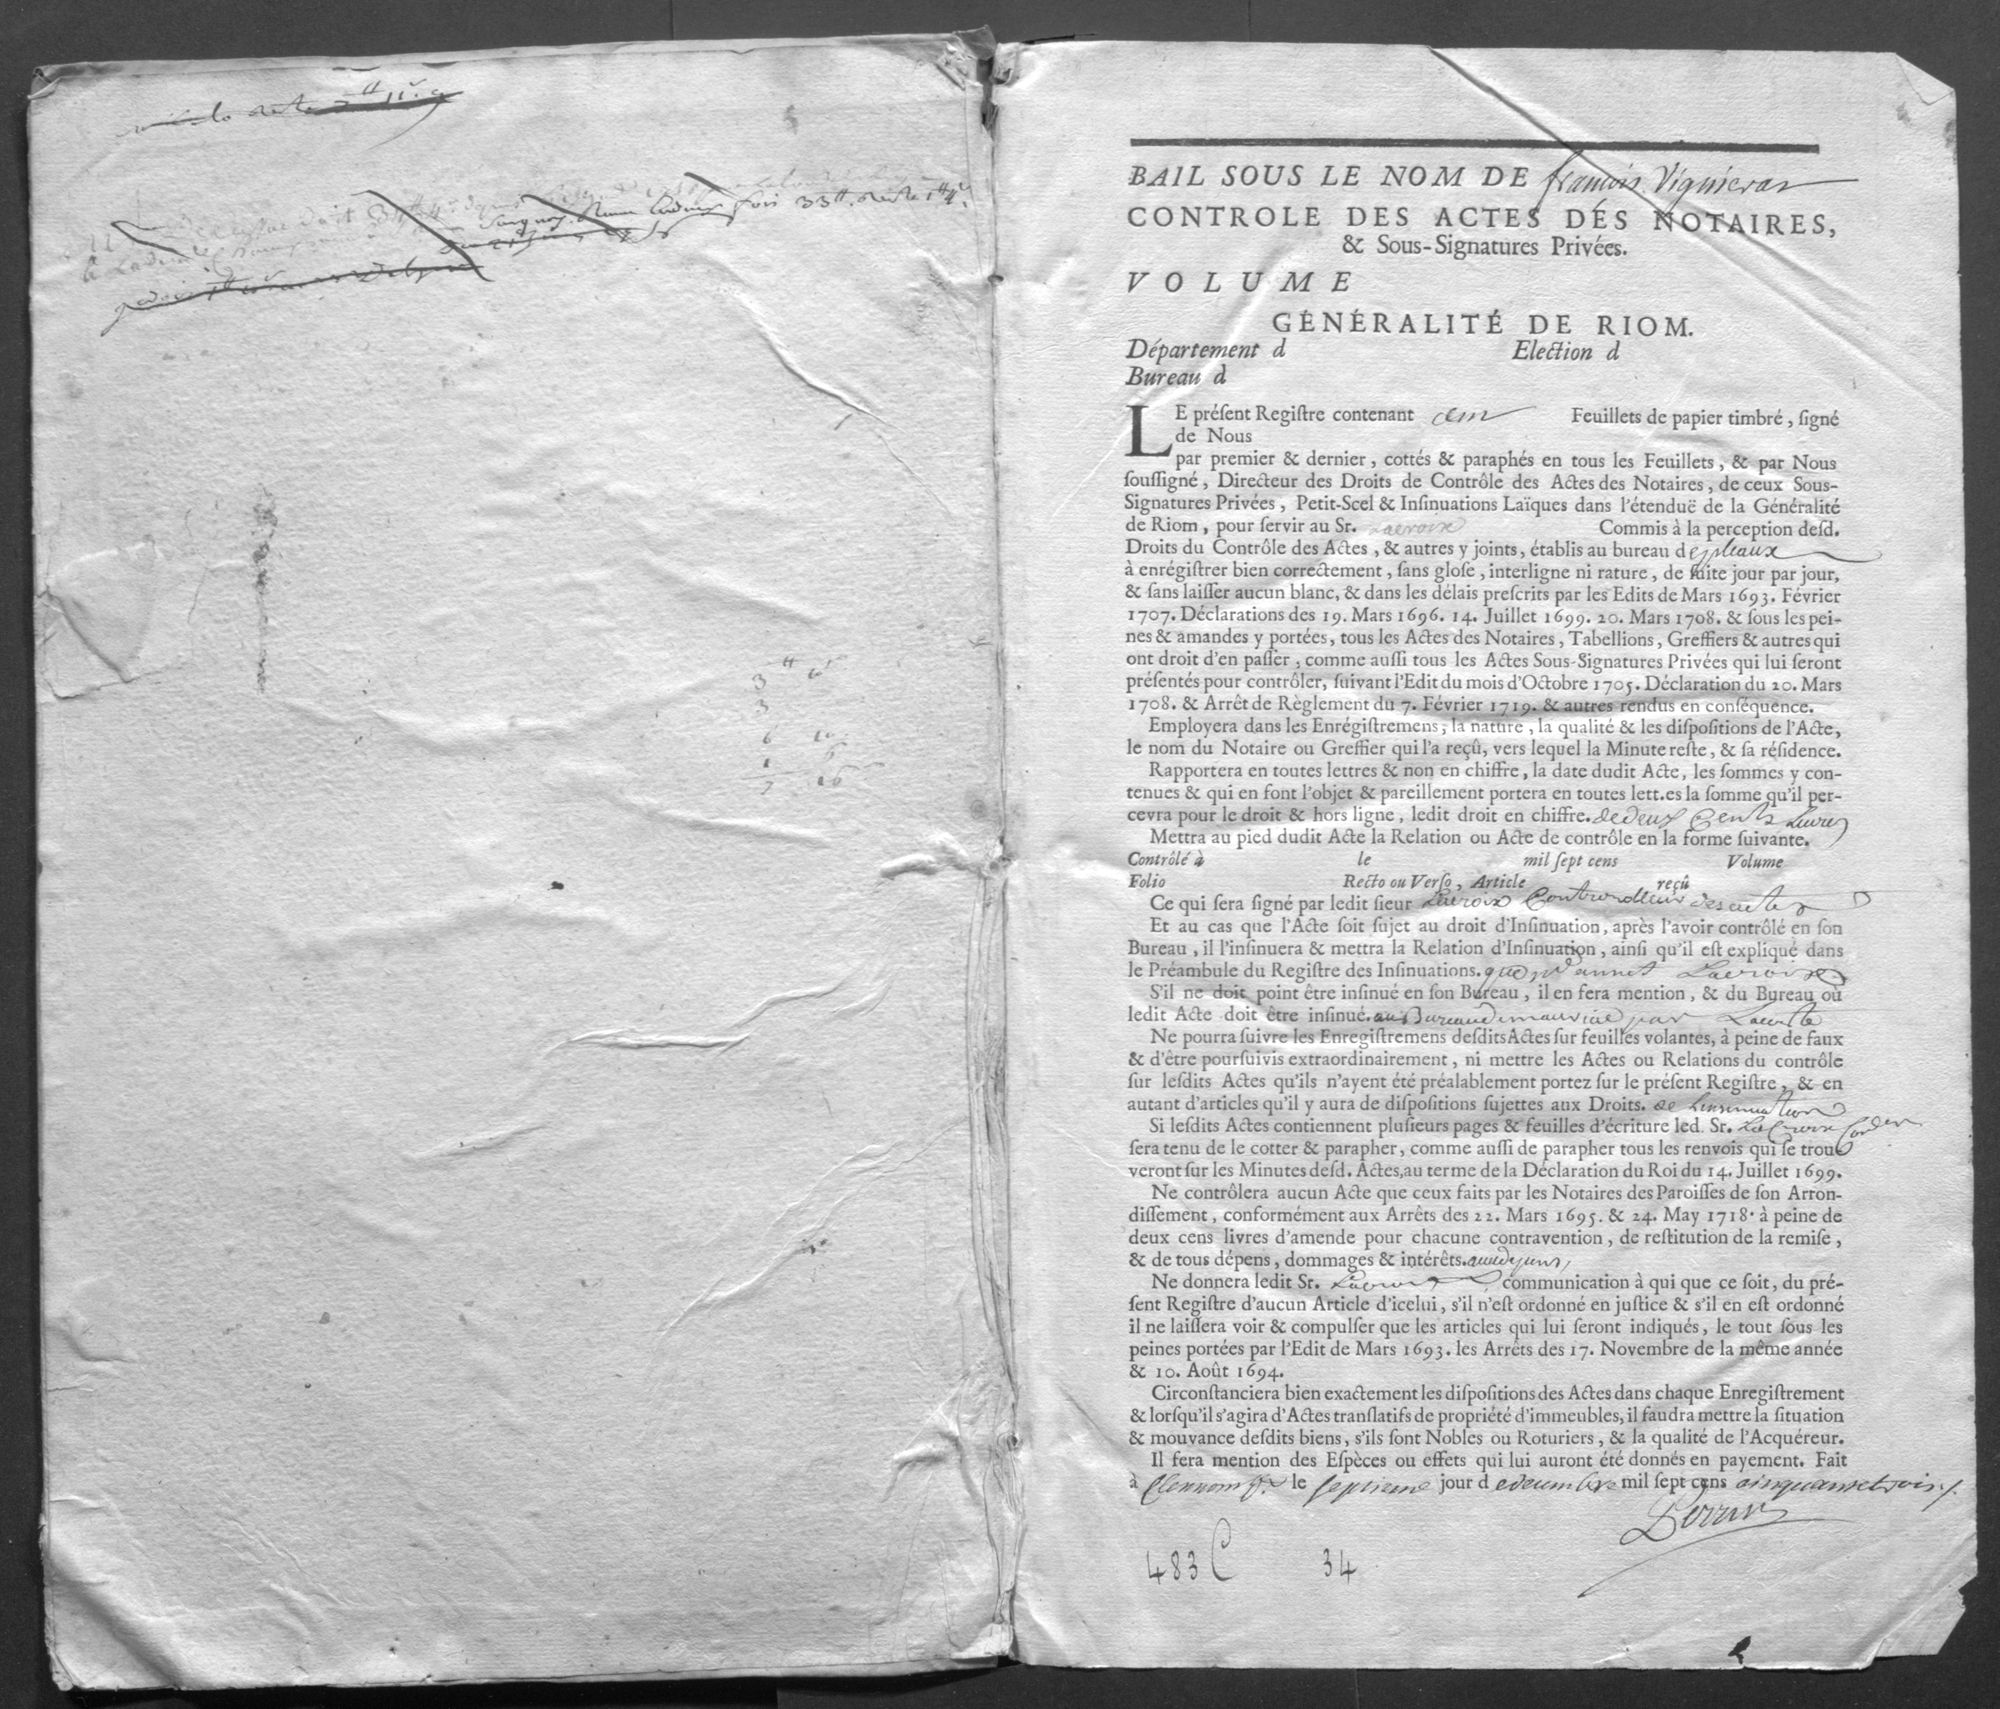 3 ^tt 10^s
3
6 10
1 6
7 16
BAIL SOUS LE NOM DE françois Vigneron
CONTROLE DES ACTES DÉS NOTAIRES,
& Sous-Signatures Privées.
VOLUME
GÉNÉRALITÉ DE RIOM.
Département d Election d
Bureau d
LE préſent Regiſtre contenant cent Feuillets de papier timbré, ſigné
de Nous
par premier & dernier, cottés & paraphés en tous les Feuillets, & par Nous
ſouſſigné, Directeur des Droits de Contrôle des Actes des Notaires, de ceux Sous-
Signatures Privées, Petit-Scel & Inſinuations Laïques dans l'étenduë de la Généralité
de Riom, pour ſervir au Sr. Lacroix Commis à la perception deſd.
Droits du Contrôle des Actes, & autres y joints, établis au bureau d
à enrégiſtrer bien correctement, ſans gloſe, interligne ni rature, de ſuite jour par jour,
& ſans laiſſer aucun blanc, & dans les délais preſcrits par les Edits de Mars 1693. Février
1707. Déclarations des 19. Mars 1696. 14. Juillet 1699. 20. Mars 1708. & ſous les pei-
nes & amandes y portées, tous les Actes des Notaires, Tabellions, Greffiers & autres qui
ont droit d'en paſſer, comme auſſi tous les Actes Sous-Signatures Privées qui lui ſeront
préſentés pour contrôler, ſuivant l'Edit du mois d'Octobre 1705. Déclaration du 20. Mars
1708. & Arrêt de Règlement du 7. Février 1719. & autres rendus en conſéquence.
Employera dans les Enrégiſtremens, la nature, la qualité & les diſpoſitions de l'Acte,
le nom du Notaire ou Greffier qui l'a reçû, vers lequel la Minute reſte, & ſa réſidence.
Rapportera en toutes lettres & non en chiffre, la date dudit Acte, les ſommes y con-
tenues & qui en font l'objet & pareillement portera en toutes lett.es la ſomme qu'il per-
cevra pour le droit & hors ligne, ledit droit en chiffre. de deux Cents Livres
Mettra au pied dudit Acte la Relation ou Acte de contrôle en la forme ſuivante.
Contrôlé à le mil ſept cens Volume
Folio Recto ou Verſo, Article reçû
Ce qui ſera ſigné par ledit ſieur Lacroix Controolleur des actes
Et au cas que l'Acte ſoit ſujet au droit d'Inſinuation, après l'avoir contrôlé en ſon
Bureau, il l'inſinuera & mettra la Relation d'Inſinuation, ainſi qu'il eſt expliqué dans
le Préambule du Regiſtre des Inſinuations. Lacroix
S'il ne doit point être inſinué en ſon Bureau, il en fera mention, & du Bureau où
ledit Acte doit être inſinué. au Bureau de mauriac par Lacoste
Ne pourra ſuivre les Enregiſtremens deſdits Actes ſur feuilles volantes, à peine de faux
& d'être pourſuivis extraordinairement, ni mettre les Actes ou Relations du contrôle
ſur leſdits Actes qu'ils n'ayent été préalablement portez ſur le préſent Regiſtre, & en
autant d'articles qu'il y aura de diſpoſitions ſujettes aux Droits. de Linsinuation
Si leſdits Actes contiennent pluſieurs pages & feuilles d'écriture led. Sr. LaCroix
ſera tenu de le cotter & parapher, comme auſſi de parapher tous les renvois qui ſe trou-
veront ſur les Minutes deſd. Actes, au terme de la Déclaration du Roi du 14. Juillet 1699.
Ne contrôlera aucun Acte que ceux faits par les Notaires des Paroiſſes de ſon Arron-
diſſement, conformément aux Arrêts des 22. Mars 1695. & 24. May 1718. à peine de
deux cens livres d'amende pour chacune contravention, de reſtitution de la remiſe,
& de tous dépens, dommages & intérêts.
Ne donnera ledit Sr. Lacroix communication à qui que ce ſoit, du pré-
ſent Regiſtre d'aucun Article d'icelui, s'il n'eſt ordonné en juſtice & s'il en eſt ordonné
il ne laiſſera voir & compulſer que les articles qui lui ſeront indiqués, le tout ſous les
peines portées par l'Edit de Mars 1693. les Arrêts des 17. Novembre de la même année
& 10. Août 1694.
Circonſtanciera bien exactement les diſpoſitions des Actes dans chaque Enregiſtrement
& lorſqu'il s'agira d'Actes tranſlatifs de propriété d'immeubles, il faudra mettre la ſituation
& mouvance deſdits biens, s'ils ſont Nobles ou Roturiers, & la qualité de l'Acquéreur.
Il fera mention des Eſpèces ou effets qui lui auront été donnés en payement. Fait
à Clermont f. le septieme jour d edecembre mil ſept cens cinquante trois ./.
483 C 34